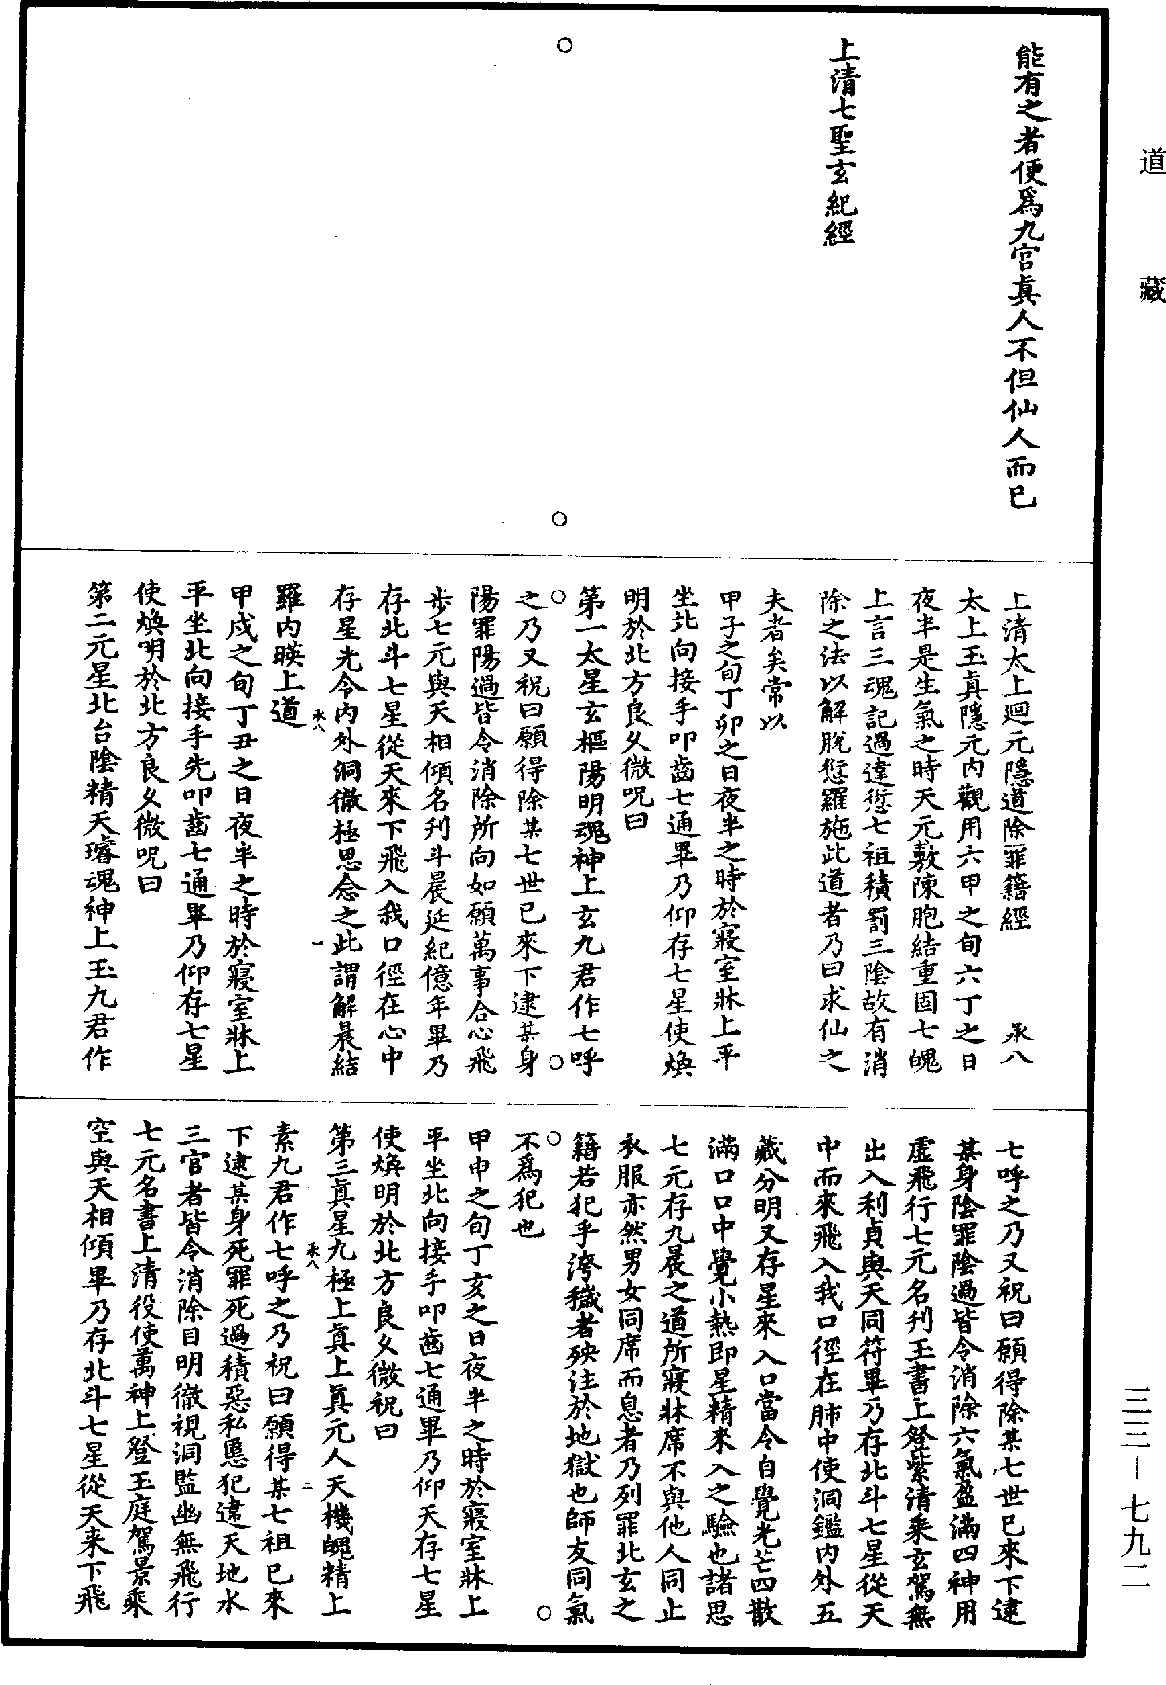 道藏
能有之者便爲九宮眞人不但仙人而已
上清七聖玄紀經
上清太上迴元隱道除罪籍經 承八
太上玉眞隱元内觀用六甲之旬六丁之日
夜半是生氣之時天元敷陳胞結重固七魄
上言三魂記過違愆七祖積罰三陰故有消
除之法以解脫愆羅施此道者乃曰求仙之
夫者矣常以
甲子之旬丁卯之日夜半之時於寢室牀上平
坐北向接手叩齒七通畢乃仰存七星使煥
明於北方良久微呪曰
第一太星玄樞陽明魂神上玄九君作七呼
之乃又祝曰願得除某七世已來下逮某身
陽罪陽過皆令消除所向如願萬事合心飛
步七元與天相傾名刋斗晨延紀億年畢乃
存北斗七星從天來下飛入我口徑在心中
存星光令内外洞徹極思念之此謂解晨結
承八 一
羅内暎上道
甲戌之旬丁丑之日夜半之時於寢室牀上
平坐北向接手先叩齒七通畢乃仰存七星
使煥明於北方良久微呪曰
第二元星北台陰精天璿魂神上玉九君作
七呼之乃又祝曰願得除某七世已來下逮
某身陰罪陰過皆令消除六氣盈滿四神用
虛飛行七元名刋玉書上登紫清乘玄駕無
出入利貞與天同符畢乃存北斗七星從天
中而來飛入我口徑在肺中使洞鑑内外五
藏分明又存星來入口當令自覺光芒四散
滿口口中覺小熱即星精來入之驗也諸思
七元存九晨之道所寢牀席不與他人同止
衣服亦然男女同席而息者乃列罪北玄之
籍若犯乎洿穢者殃注於地獄也師友同氣
不爲犯也
甲申之旬丁亥之日夜半之時於寢室牀上
平坐北向接手叩齒七通畢乃仰天存七星
使煥明於北方良久微祝曰
第三眞星九極上眞上眞元人天機魄精上
承八 二
素九君作七呼之乃祝曰願得某七祖已來
下逮某身死罪死過積惡私慝犯違天地水
三官者皆令消除目明徹視洞監幽無飛行
七元名書上清役使萬神上登玉庭駕景乘
空與天相傾畢乃存北斗七星從天来下飛
三三—七九二